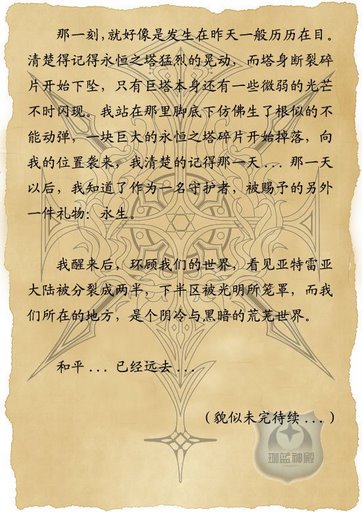 那一刻，就好像是发生在昨天一般历历在目。
清楚得记得永恒之塔猛烈的晃动，而塔身断裂碎
片开始下坠，只有巨塔本身还有一些微弱的光芒
不时闪现。我站在那里脚底下仿佛生了根似的不
能动弹，一块巨大的永恒之塔碎片开始掉落，向
我的位置袭来，我清楚的记得那一天... 那一天
以后，我知道了作为一名守护者，被赐予的另外
一件礼物：永生。
我醒来后，环顾我们的世界，看见亚特雷亚
大陆被分裂成两半，下半区被光明所笼罩，而我
们所在的地方，是个阴冷与黑暗的荒芜世界。
和平 ... 已经远去 ...
（貌似未完待续 ... ）
珈蓝神殿